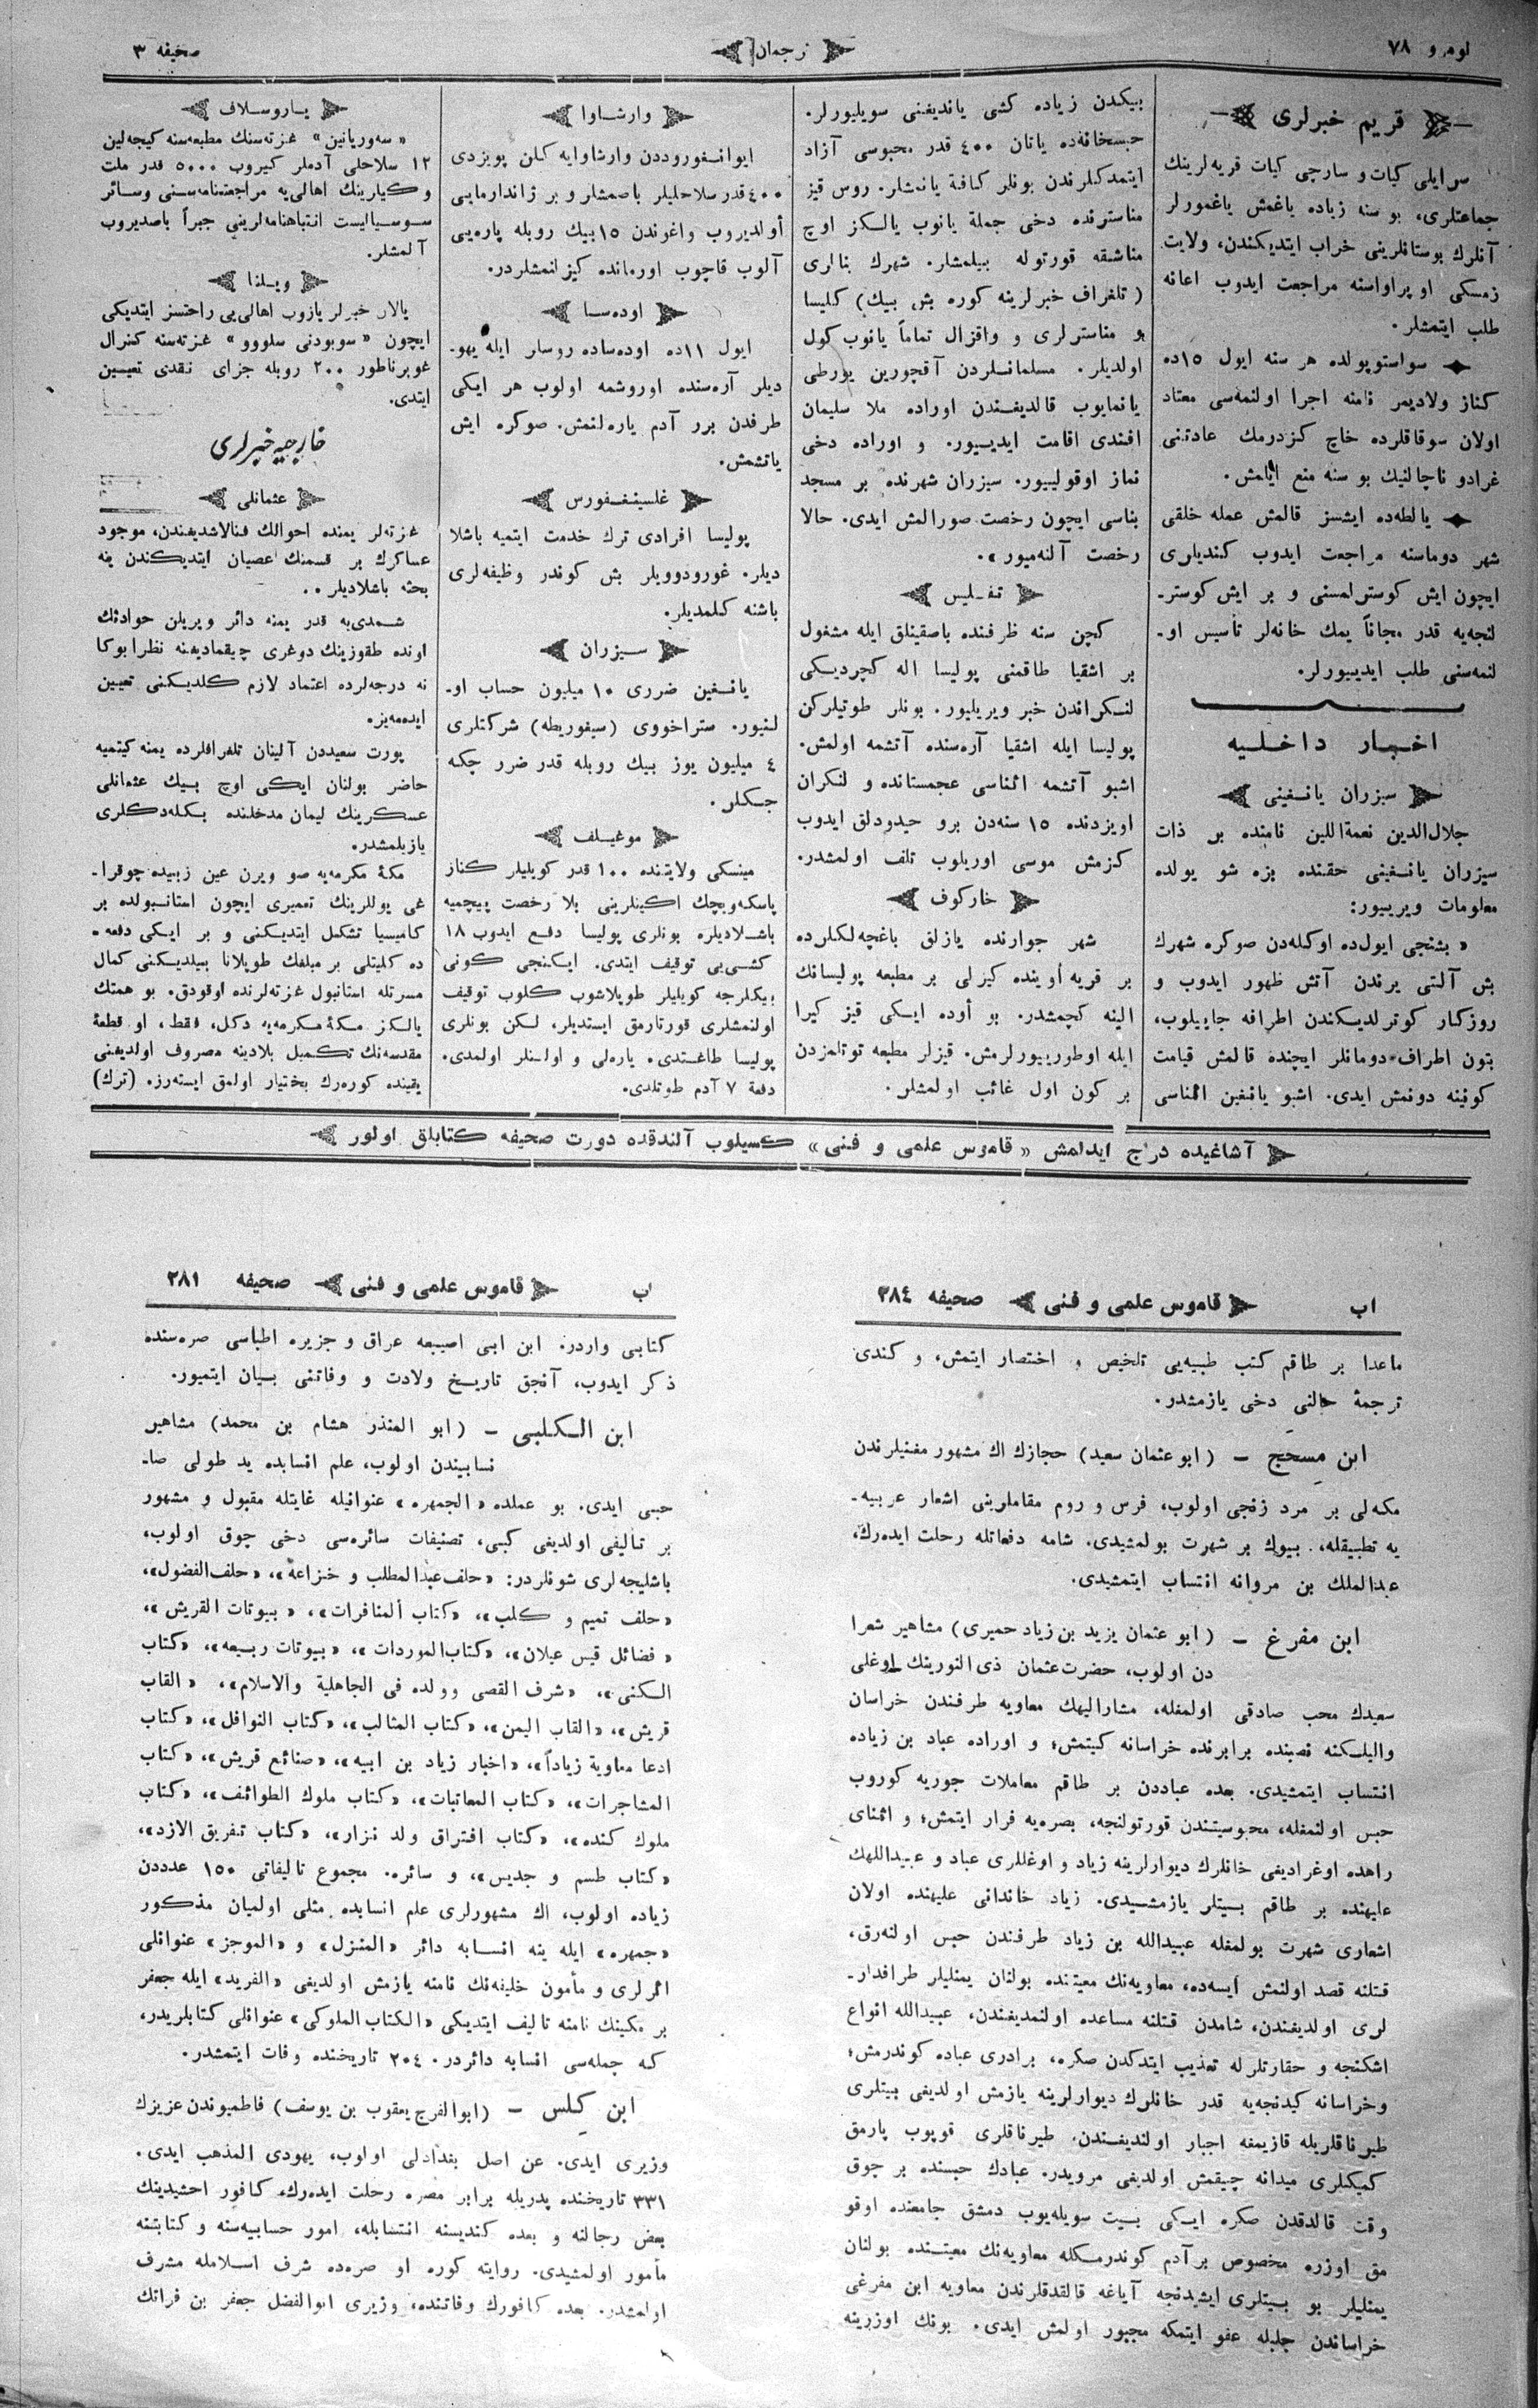 نومرو ٧٨
ترجمان
صحیفه ٣
قریم خبرلری
سرایلی کیات و سارچی کیات قریه‌لرینك
جماعتلری، بو سنه زیاده یاغمش یاغمورلر
آنلرك بوستانلرینی خراب ایتدیکندن، ولایت
زمسکی اوپراواسنه مراجعت ایدوب اعانه
طلب ایتمشلر.
سواستوپولده هر سنه ایول ١٥ده
کناز ولادیمر نامنه اجرا اولنمه‌سی معتاد
اولان سوقاقلرده خاچ کزدرمك عادتنی
غرادو ناچالنیك بو سنه منع ایلمش.
یالطه‌ده ایشسز قالمش عمله خلقی
شهر دوماسنه مراجعت ایدوب کندیلری
ایچون ایش کوسترلمسنی و بر ایش کوستر-
لنجه‌یه قدر مجاناً یمك خانه‌لر تأسیس او-
لنمه‌سنی طلب ایدییورلر.
اخبار داخلیه
سیزران یانغینی
جلال‌الدین نعمة‌اللین نامنده بر ذات
سیزران یانغینی حقنده بزه شو یولده
معلومات ویرییور:
« بشنجی ایول‌ده اوکله‌دن صوکره شهرك
بش آلتی یرندن آتش ظهور ایدوب و
روزکار کوترلدیکندن اطرافه جاییلوب،
بتون اطراف دومانلر ایچنده قالمش قیامت
کونینه دونمش ایدی. اشبو یانغین اثناسی
بیکدن زیاده کشی یاندیغنی سویلیورلر.
حبسخانه‌ده یاتان ٤٠٠ قدر محبوسی آزاد
ایتمدکلرندن بونلر کافة یانمشلر. روس قیز
مناسترنده دخی جملة یانوب یالکز اوچ
مناشقه قورتوله بیلمشار. شهرك بنالری
( تلغراف خبرلرینه کوره بش بیك) کلیسا
و مناسترلری و واقزال تماماً یانوب کول
اولدیلر. مسلمانلردن آقچورین یورطی
یانمایوب قالدیغندن اوراده ملا سلیمان
افندی اقامت ایدییور. و اوراده دخی
نماز اوقولییور. سیزران شهرنده بر مسجد
بناسی ایچون رخصت صورالمش ایدی. حالا
رخصت آلنه‌میور».
تفلیس
کچن سنه ظرفنده باصقینلق ایله مشغول
بر اشقیا طاقمنی پولیسا اله کچردیکی
لنکراندن خبر ویریلیور. بونلر طوتیلرکن
پولیسا ایله اشقیا آره‌سنده آتشمه اولمش.
اشبو آتشمه اثناسی عجمستانده و لنکران
اویزدنده ١٥ سنه‌دن برو حیدودلق ایدوب
کزمش موسی اوریلوب تلف اولمشدر.
خارکوف
شهر جوارنده یازلق باغچه‌لکلرده
بر قریه أوینده کیزلی بر مطبعه پولیسانك
الینه کچمشدر. بو أوده ایکی قیز کیرا
ایله اوطورییورلرمش. قیزلر مطبعه توتلمزدن
بر کون اول غائب اولمشلر.
وارشاوا
ایوانغوروددن وارشاوایه کلن پویزدی
٤٠٠ قدر سلاحلیلر باصمشلر و بر ژاندارمایی
أولدیروب واغوندن ١٥ بیك روبله پاره‌یی
آلوب قاچوب اورمانده کیزلنمشلردر.
اوده‌سا
ایول ١١ده اوده‌ساده روسلر ایله یهو-
دیلر آره‌سنده اوروشمه اولوب هر ایکی
طرفدن برر آدم یاره‌لنمش. صوکره ایش
یاتشمش.
غلسینغفورس
پولیسا افرادی ترك خدمت ایتمیه باشلا
دیلر. غورودوویلر بش کوندر وظیفه‌لری
باشنه کلمدیلر.
سیزران
یانغین ضرری ١٠ میلیون حساب او-
لنیور. ستراخووی (سیغوریطه) شرکتلری
٤ میلیون یوز بیك روبله قدر ضرر چکه
جکلر.
موغیلف
مینسکی ولایتنده ١٠٠ قدر کویلیلر کناز
پاسکه‌ویچك اکینلرینی بلا رخصت پیچمیه
باشلادیلر. بونلری پولیسا دفع ایدوب ١٨
کشی‌یی توقیف ایتدی. ایکنجی کونی
بیکلرجه کویلیلر طوپلاشوب کلوب توقیف
اولنمشلری قورتارمق ایستدیلر، لکن بونلری
پولیسا طاغتدی. یاره‌لی و اولنلر اولمدی.
دفعة ٧ آدم طوتلدی.
یاروسلاف
« سه‌وریانین» غزته‌سنك مطبعه‌سنه کیجه‌لین
١٢ سلاحلی آدملر کیروب ٥٠٠٠ قدر ملت
وکیلرینك اهالی‌یه مراجعتنامه‌سنی وسائر
سوسیالیست انتباهنامه‌لرینی جبراً باصدیروب
آلمشلر.
ویلنا
یالان خبرلر یازوب اهالی‌یی راحتسز ایتدیکی
ایچون «سوبودنی سلووو» غزته‌سنه کنرال
غوبرناطور ٢٠٠ روبله جزای نقدی تعیین
ایتدی.
خارجیه خبرلری
عثمانلی
غزته‌لر یمنده احوالك فنالاشدیغندن، موجود
عساکرك بر قسمنك عصیان ایتدیکندن ینه
بحثه باشلادیلر..
شمدی‌یه قدر یمنه دائر ویریلن حوادثك
اونده طقوزینك دوغری چیقمادیغنه نظرا بوکا
نه درجه‌لرده اعتماد لازم کلدیکنی تعیین
ایده‌مه‌یز.
پورت سعیددن آلینان تلغرافلرده یمنه کیتمیه
حاضر بولنان ایکی اوچ بیك عثمانلی
عسکرینك لیمان مدخلنده بکله‌دکلری
یازیلمشدر.
مکۀ مکرمه‌یه صو ویرن عین زبیده چوقرا-
غی یوللرینك تعمیری ایچون استانبولده بر
کامیسیا تشکل ایتدیکنی و بر ایکی دفعه-
ده کلیتلی بر مبلغك طوپلانا بیلدیکنی کمال
مسرتله استانبول غزته‌لرنده اوقودق. بو همتك
یالکز مکۀ مکرمه‌یه دکل، فقط، او قطعۀ
مقدسه‌نك تکمیل بلادینه مصروف اولدیغنی
یقینده کوره‌رك بختیار اولمق ایسته‌رز. (ترك)
آشاغیده درج ایدلمش «قاموس علمی و فنی» کسیلوب آلندقده دورت صحیفه کتابلق اولور
اب
قاموس علمی و فنی
صحیفه ٢٨٤
ماعدا بر طاقم کتب طبیه‌یی تلخیص و اختصار ایتمش، و کندی
ترجمۀ حالنی دخی یازمشدر.
ابن مسحج – (ابو عثمان سعید) حجازك اك مشهور مغنیلرندن
مکه‌لی بر مرد زنجی اولوب، فرس و روم مقاملرینی اشعار عربیه-
یه تطبیقله، بیوك بر شهرت بولمشیدی. شامه دفعاتله رحلت ایده‌رك،
عبدالملك بن مروانه انتساب ایتمشیدی.
ابن مفرغ – (ابو عثمان یزید بن زیاد حمیری) مشاهیر شعرا
دن اولوب، حضرت عثمان ذی النورینك اوغلی
سعیدك محب صادقی اولمغله، مشارالیهك معاویه طرفندن خراسان
والیلکنه نصبنده برابرنده خراسانه کیتمش؛ و اوراده عباد بن زیاده
انتساب ایتمشیدی. بعده عباددن بر طاقم معاملات جوریه کوروب
حبس اولنمغله، محبوسیتندن قورتولنجه، بصره‌یه فرار ایتمش؛ و اثنای
راهده اوغرادیغی خانلرك دیوارلرینه زیاد و اوغللری عباد و عبیداللهك
علیهنده بر طاقم بیتلر یازمشیدی. زیاد خاندانی علیهنده اولان
اشعاری شهرت بولمغله عبیدالله بن زیاد طرفندن حبس اولنه‌رق،
قتلنه قصد اولنمش ایسه‌ده، معاویه‌نك معیتنده بولنان یمنلیلر طرافدار-
لری اولدیغندن، شامدن قتلنه مساعده اولنمدیغندن، عبیدالله انواع
اشکنجه و حقارتلرله تعذیب ایتدکدن صکره، برادری عباده کوندرمش؛
وخراسانه کیدنجه‌یه قدر خانلرك دیوارلرینه یازمش اولدیغی بیتلری
طیرناقلریله قازیمغه اجبار اولندیغندن، طیرناقلری قوپوب پارمق
کمیکلری میدانه چیقمش اولدیغی مرویدر. عبادك حبسنده بر چوق
وقت قالدقدن صکره ایکی بیت سویله‌یوب دمشق جامعنده اوقو
مق اوزره مخصوص بر آدم کوندرمکله معاویه‌نك معیتنده بولنان
یمنلیلر بو بیتلری ایشیدنجه آیاغه قالقدقلرندن معاویه ابن مفرغی
خراساندن جلبله عفو ایتمکه مجبور اولمش ایدی. بونك اوزرینه
اب
قاموس علمی و فنی
صحیفه ٢٨١
کتابی واردر. ابن ابی اصیبعه عراق و جزیره اطباسی صره‌سنده
ذکر ایدوب، آنجق تاریخ ولادت و وفاتنی بیان ایتمیور.
ابن الکلبی – (ابو المنذر هشام بن محمد) مشاهیر
نسابیندن اولوب، علم انسابده ید طولی صا-
حبی ایدی. بو عملده «الجمهره» عنوانیله غایتله مقبول و مشهور
بر تالیفی اولدیغی کبی، تصنیفات سائره‌سی دخی چوق اولوب،
باشلیجه‌لری شونلردر: «حلف عبدالمطلب و خزاعة»، «حلف الفضول»،
«حلف تمیم و کلب»، «کتاب المنافرات»، «بیوتات القریش»،
«فضائل قیس عیلان»، «کتاب الموردات»، «بیوتات ربیعه»، «کتاب
الکنی»، «شرف القصی وولده فی الجاهلیة والاسلام»، «القاب
قریش»، «القاب الیمن»، «کتاب المثالب»، «کتاب النوافل»، «کتاب
ادعا معاویة زیاداً»، «اخبار زیاد بن ابیه»، «صنائع قریش»، «کتاب
المشاجرات»، «کتاب المعاتبات»، «کتاب ملوك الطوائف»، «کتاب
ملوك کنده»، «کتاب افتراق ولد نزار»، «کتاب تفریق الازد»،
«کتاب طسم و جدیس»، و سائره. مجموع تالیفاتی ١٥٠ عدددن
زیاده اولوب، اك مشهورلری علم انسابده مثلی اولمیان مذکور
«جمهره» ایله ینه انسابه دائر «المنزل» و «الموجز» عنوانلی
اثرلری و مأمون خلیفه‌نك نامنه یازمش اولدیغی «الفرید» ایله جعفر
برمکینك نامنه تالیف ایتدیکی «الکتاب الملوکی» عنوانلی کتابلریدر،
که جمله‌سی انسابه دائردر. ٢٠٤ تاریخنده وفات ایتمشدر.
ابن کلس – (ابوالفرج یعقوب بن یوسف) فاطمیوندن عزیزك
وزیری ایدی. عن اصل بغدادلی اولوب، یهودی المذهب ایدی.
٣٣١ تاریخنده پدریله برابر مصره رحلت ایده‌رك، کافور اخشیدینك
بعض رجالنه و بعده کندیسنه انتسابله، امور حسابیه‌سنه و کتابتنه
مأمور اولمشیدی. روایته کوره او صره‌ده شرف اسلامله مشرف
اولمشدر. بعده کافورك وفاتنده، وزیری ابوالفضل جعفر بن فراتك